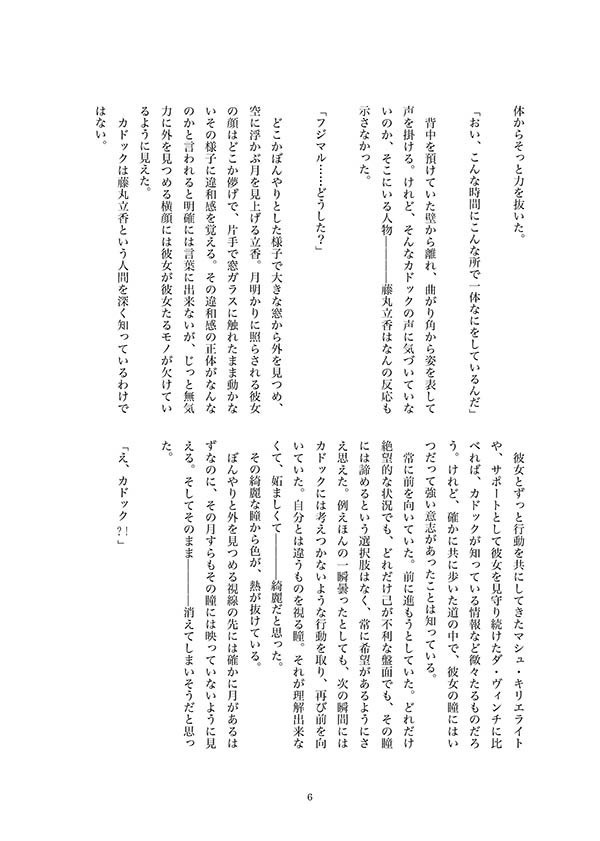 体からそっと力を抜いた。
「おい、こんな時間にこんな所で一体なにをしているんだ」
背中を預けていた壁から離れ、曲がり角から姿を表して
声を掛ける。けれど、そんなカドックの声に気づいていな
いのか、そこにいる人物————藤丸立香はなんの反応も
示さなかった。
「フジマル……どうした？」
どこかぼんやりとした様子で大きな窓から外を見つめ、
空に浮かぶ月を見上げる立香。月明かりに照らされる彼女
の顔はどこか儚げで、片手で窓ガラスに触れたまま動かな
いその様子に違和感を覚える。その違和感の正体がなんな
のかと言われると明確には言葉に出来ないが、じっと無気
力に外を見つめる横顔には彼女が彼女たるモノが欠けてい
るように見えた。
カドックは藤丸立香という人間を深く知っているわけで
はない。
彼女とずっと行動を共にしてきたマシュ・キリエライト
や、サポートとして彼女を見守り続けたダ・ヴィンチに比
べれば、カドックが知っている情報など微々たるものだろ
う。けれど、確かに共に歩いた道の中で、彼女の瞳にはい
つだって強い意志があったことは知っている。
常に前を向いていた。前に進もうとしていた。どれだけ
絶望的な状況でも、どれだけ己が不利な盤面でも、その瞳
には諦めるという選択肢はなく、常に希望があるようにさ
え思えた。例えほんの一瞬曇ったとしても、次の瞬間には
カドックには考えつかないような行動を取り、再び前を向
いていた。自分とは違うものを視る瞳。それが理解出来な
くて、妬ましくて————綺麗だと思った。
その綺麗な瞳から色が、熱が抜けている。
ぼんやりと外を見つめる視線の先には確かに月があるは
ずなのに、その月すらもその瞳には映っていないように見
える。そしてそのまま————消えてしまいそうだと思っ
た。
「え、カドック？！」
6